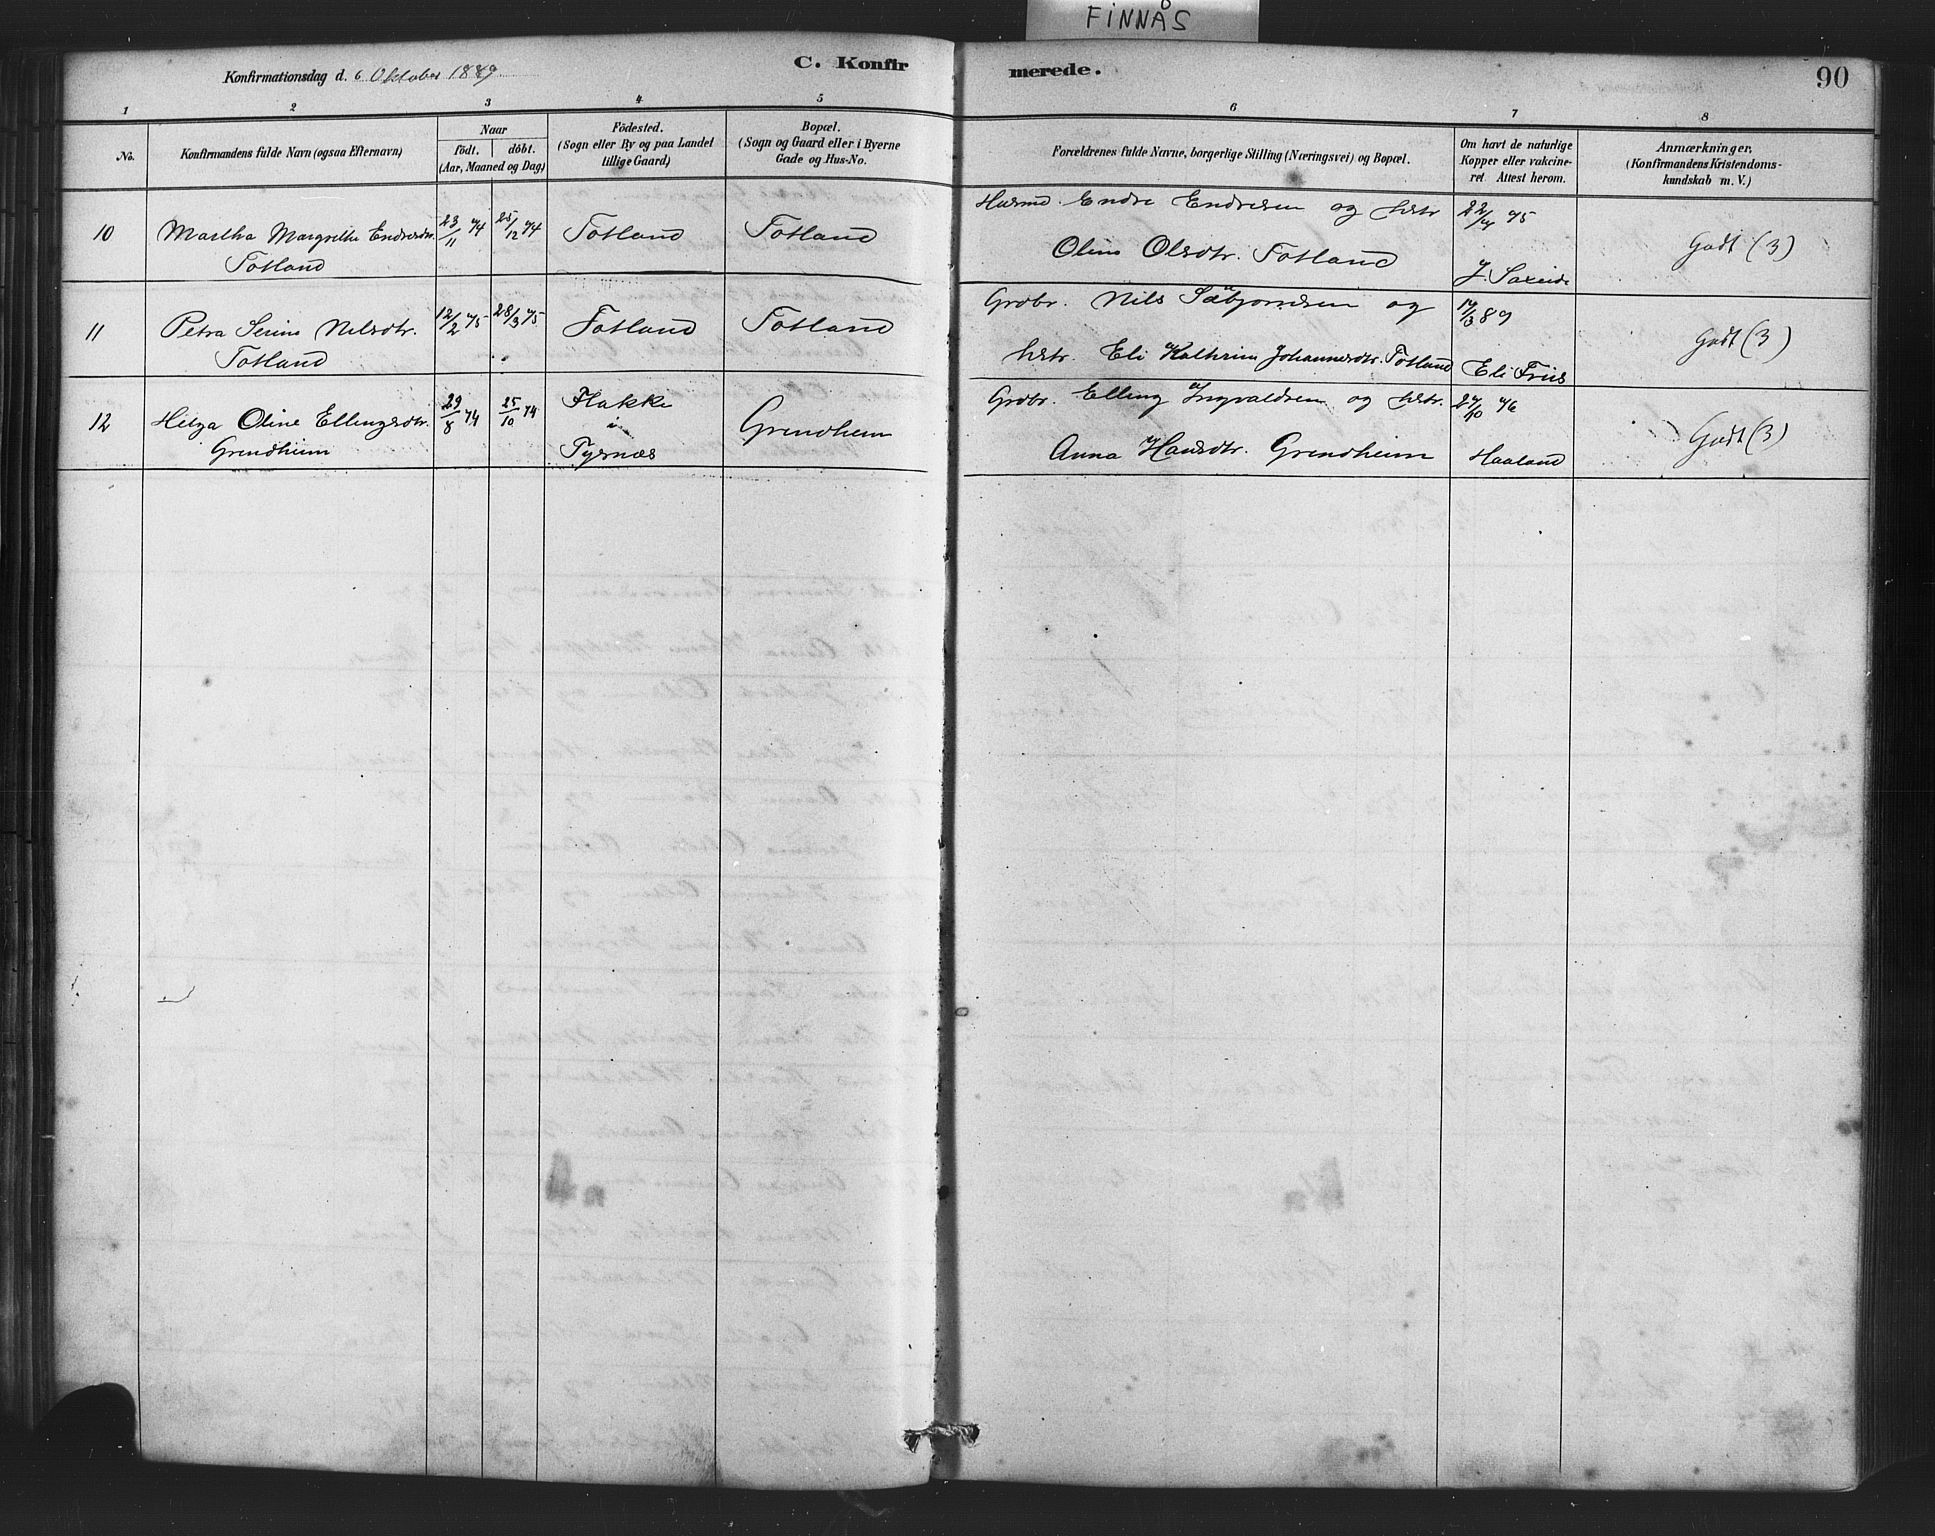 FINNÅS
Konfirmationsdag d. 6 Oktober 1889
C. Konfirmerede.
90
1 2 3 4 5 6 7 8
No.
Konfirmandens fulde Navn (ogsaa Efternavn)
Naar
födt. döbt.
(Aar, Maaned og Dag)
Födested.
(Sogn eller By og paa Landet
tillige Gaard)
Bopæl.
(Sogn og Gaard eller i Byerne
Gade og Hus-No.
Forældrenes fulde Navne, borgerlige Stilling (Næringsvei) og Bopæl.
Om havt de naturlige
Kopper eller vakcine-
ret Attest herom.
Anmærkninger,
(Konfirmandens Kristendoms-
kundskab m. V.)
10 Martha Margrethe Endresdtr. 23/11 74 25/12 74 Totland Totland Husmd. Endre Endresen og Hstr 22/4 75
Totland Oline Olsdtr. Totland J. Saxeide Godt (3)
11 Petra Serine Nilsdtr. 12/2 75 28/3 75 Totland Totland Grdbr. Nils Sæbjørnsen og 17/3 89
Totland hstr. Eli Kathrine Johannesdtr. Totland Eli Friis Godt (3)
12 Helga Oline Ellingsdtr. 29/8 74 25/10 74 Flakke i Tysnæs Grendheim Grdbr. Elling Ingvaldsen og Hstr. 27/10 76
Grendheim Anna Hansdtr. Grendheim Haaland Godt (3)